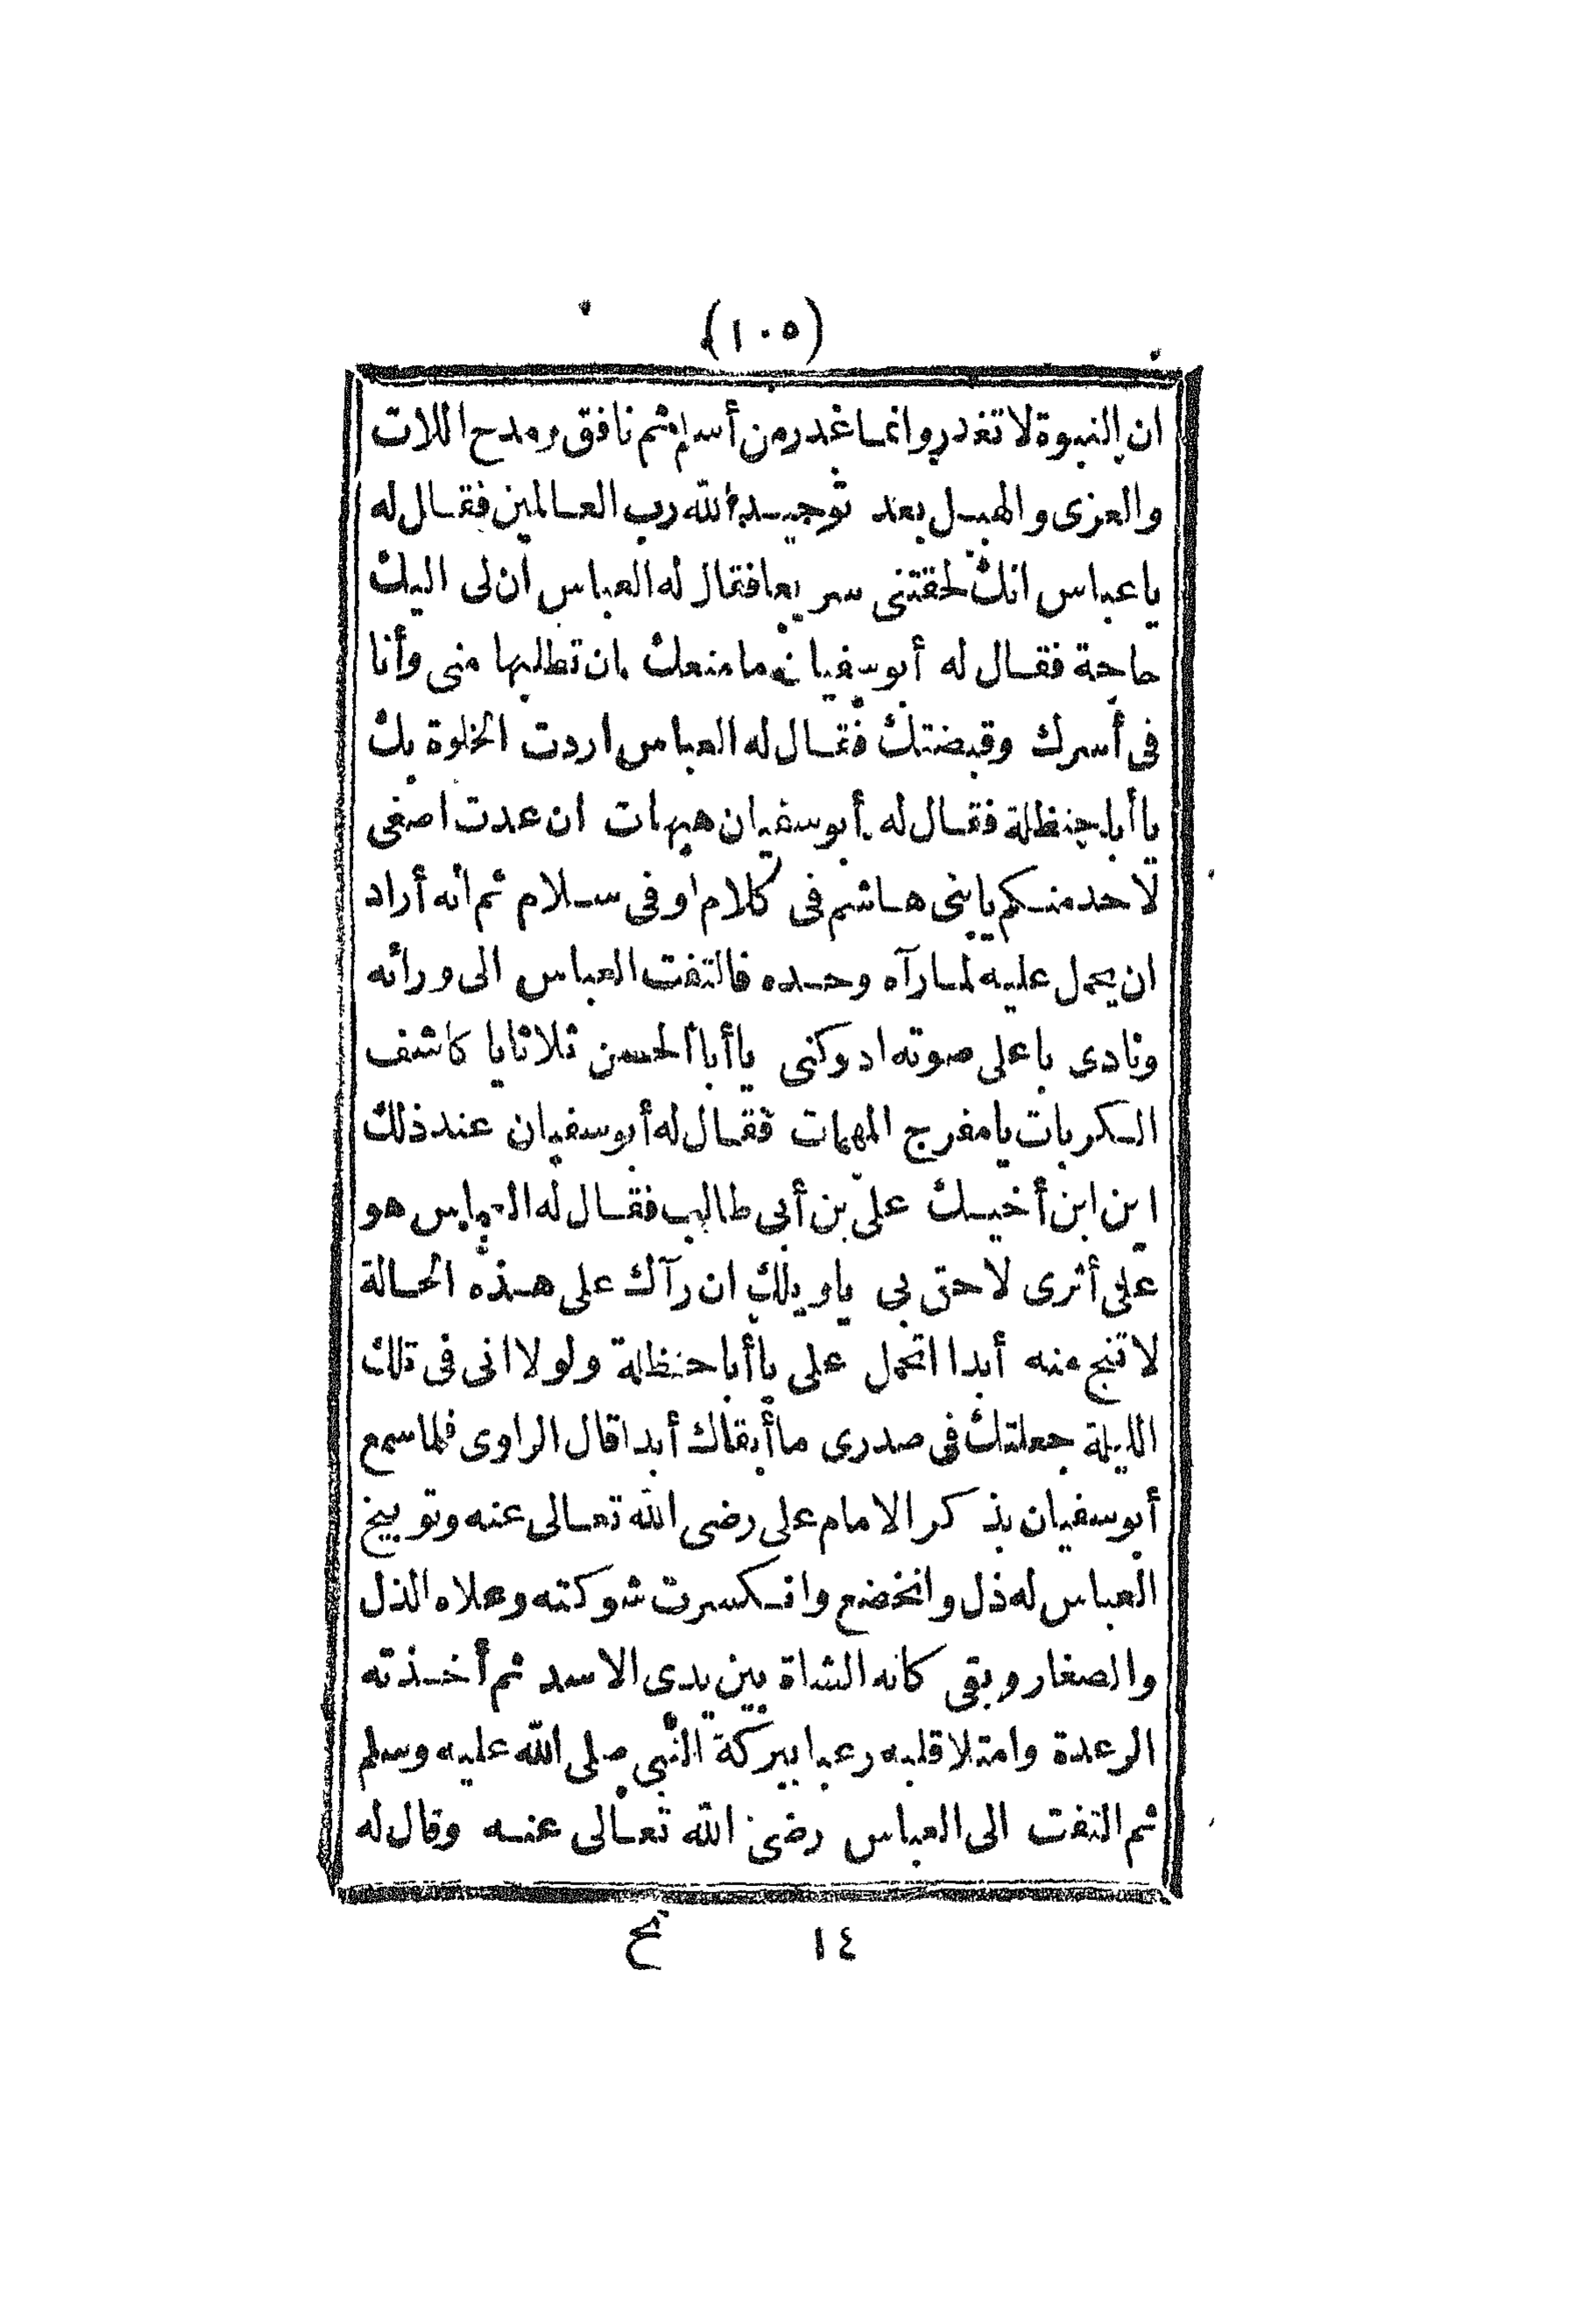 (١٠٥)
ان النبوة لا تغدر وانما غدر من أسلم ثم نافق ومدح اللات
والعزى والهبل بعد توحيد الله رب العالمين فقال له
ياعباس انك لحقتنى سريعا فقال له العباس ان لى اليك
حاجة فقال له أبو سفيان ما منعك ان تطلبها منى وأنا
فى أسرك وقبضتك فقال له العباس اردت الخلوة بك
يا أبا حنظلة فقال له أبو سفيان هيهات ان عدت اصغى
لاحد منكم يابنى هاشم فى كلام او فى سلام ثم انه أراد
ان يحمل عليه لما رآه وحده فالتفت العباس الى ورائه
ونادى باعلى صوته ادركنى يا أبا الحسن ثلاثا يا كاشف
الكربات يا مفرج المهمات فقال له أبو سفيان عند ذلك
اين ابن أخيك على بن أبى طالب فقال له العباس هو
على أثرى لاحق بى ياويلك ان رآك على هذه الحالة
لا تنج منه أبدا اتحمل على يا أبا حنظلة ولولا انى فى تلك
الليلة جعلتك فى صدرى ما أبقاك أبدا قال الراوى فلما سمع
أبو سفيان بذكر الامام على رضى الله تعالى عنه وتوبيخ
العباس له ذل وانخضع وانكسرت شوكته وعلاه الذل
والصغار وبقى كانه الشاة بين يدى الاسد ثم أخذته
الرعدة وامتلا قلبه رعبا ببركة النبى صلى الله عليه وسلم
ثم التفت الى العباس رضى الله تعالى عنه وقال له
١٤ تح